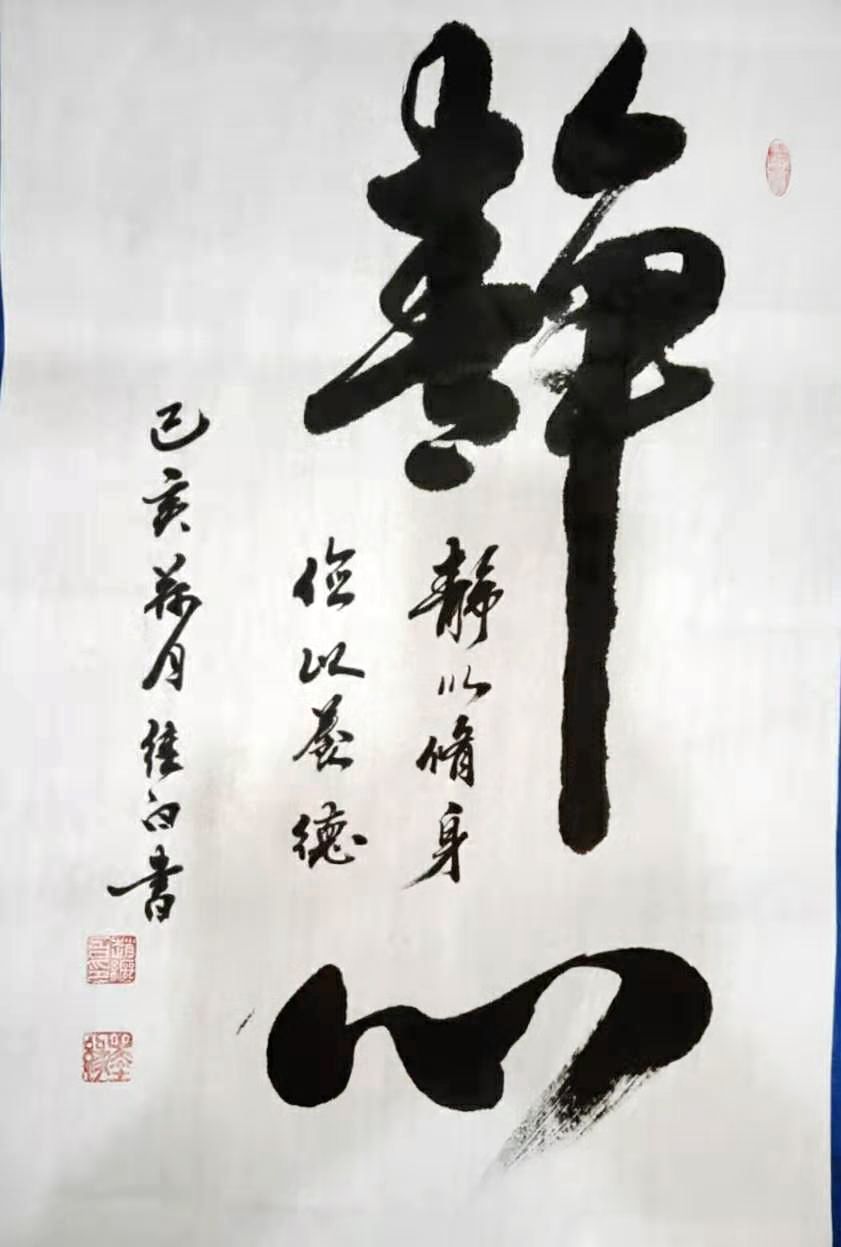 静心
静以脩身
俭以养德
己亥荷月继白书